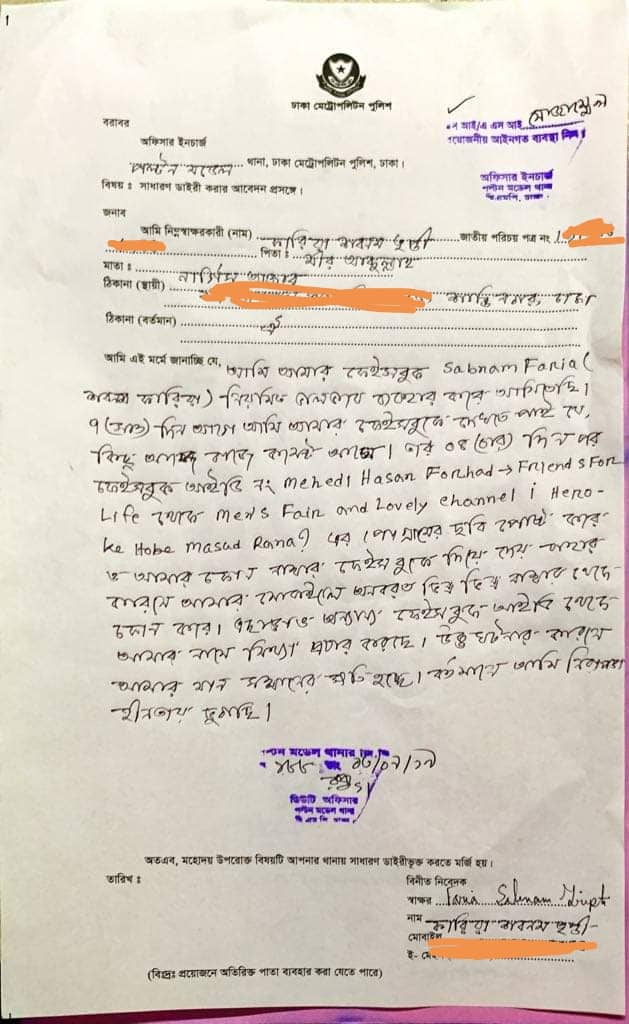 1
ঢাকা মেট্রোপলিটন পুলিশ
বরাবর
অফিসার ইনচার্জ
পল্টন মডেল থানা, ঢাকা মেট্রোপলিটন পুলিশ, ঢাকা।
বিষয় : সাধারণ ডাইরী করার আবেদন প্রসঙ্গে।
এস আই/এ এস আই
প্রয়োজনীয় আইনগত ব্যবস্থা নিন।
অফিসার ইনচার্জ
পল্টন মডেল থানা
ডিএমপি, ঢাকা।
জনাব
আমি নিম্নস্বাক্ষরকারী (নাম) ফারিয়া শবনম তৃপ্তী জাতীয় পরিচয় পত্র নং
পিতা : মীর আব্দুল্লাহ
মাতা :
ঠিকানা (স্থায়ী) শান্তি নগর, ঢাকা
ঠিকানা (বর্তমান) ঐ
আমি এই মর্মে জানাচ্ছি যে, আমি আমার ফেইসবুক Sabnam Faria (
শবনম ফারিয়া) নিয়মিত ব্যবহার করে আসিতেছি।
৭ (সাত) দিন আগে আমি আমার ফেইসবুকে দেখতে পাই যে,
কিছু বাজে কমেন্ট আসে। তার ০৪ (চার) দিন পর
ফেইসবুক আইডি নং Mehedi Hasan Forhad → Friends For
Life থেকে Men's Fair and Lovely channel i Hero-
ke Hobe Masud Rana? এর ছবি পোষ্ট করে
ও আমার ফোন নাম্বার ফেইসবুকে দিয়ে দেয় যাহার
কারনে আমার মোবাইলে অনবরত ভিন্ন ভিন্ন নাম্বার থেকে
ফোন করে। এছাড়াও অন্যান্য ফেইসবুক আইডি থেকে
আমার নামে মিথ্যা প্রচার করছে। উক্ত ঘটনার কারনে
আমার মান সম্মানের ক্ষতি হচ্ছে। বর্তমানে আমি নিরাপত্তা
হীনতায় ভুগছি।
পল্টন মডেল থানার জি,ডি
ডিউটি অফিসার
পল্টন মডেল থানা
ডি এম পি, ঢাকা।
অতএব, মহোদয় উপরোক্ত বিষয়টি আপনার থানায় সাধারণ ডাইরীভুক্ত করতে মর্জি হয়।
তারিখ :
বিনীত নিবেদক
স্বাক্ষর Faria Sabnam Tripti
নাম ফারিয়া শবনম তৃপ্তী
মোবাইল
ই-
(বিঃদ্রঃ প্রয়োজনে অতিরিক্ত পাতা ব্যবহার করা যেতে পারে)